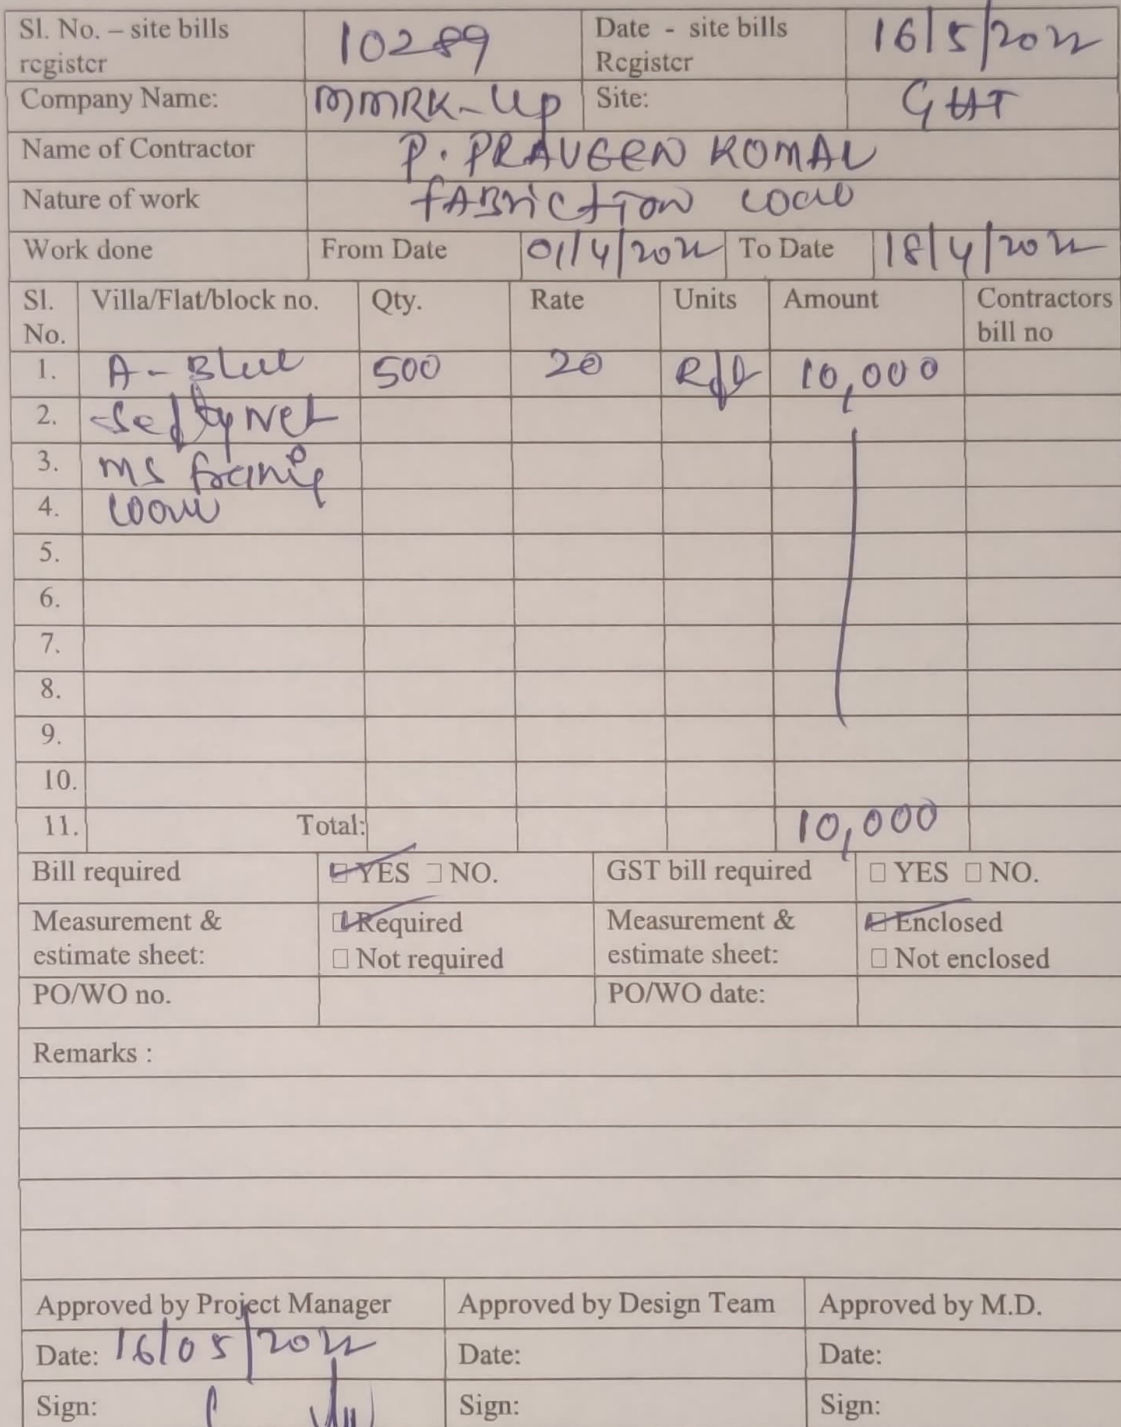 Sl. No. – site bills register 10289 Date - site bills Register 16/5/2022
Company Name: MMRK-Up Site: GHT
Name of Contractor P. PRAVEEN KOMAL
Nature of work FABRICTION
Work done From Date 01/4/2022 To Date 18/4/2022
Sl. No. Villa/Flat/block no. Qty. Rate Units Amount Contractors bill no
1. A - 500 20 Rft 10,000
2. Net
3. MS
4.
5.
6.
7.
8.
9.
10.
11. Total: 10,000
Bill required ☑ YES ☐ NO. GST bill required ☐ YES ☐ NO.
Measurement & estimate sheet: ☑ Required ☐ Not required Measurement & estimate sheet: ☑ Enclosed ☐ Not enclosed
PO/WO no. PO/WO date:
Remarks :
Approved by Project Manager Approved by Design Team Approved by M.D.
Date: 16/05/2022 Date: Date:
Sign: Sign: Sign: